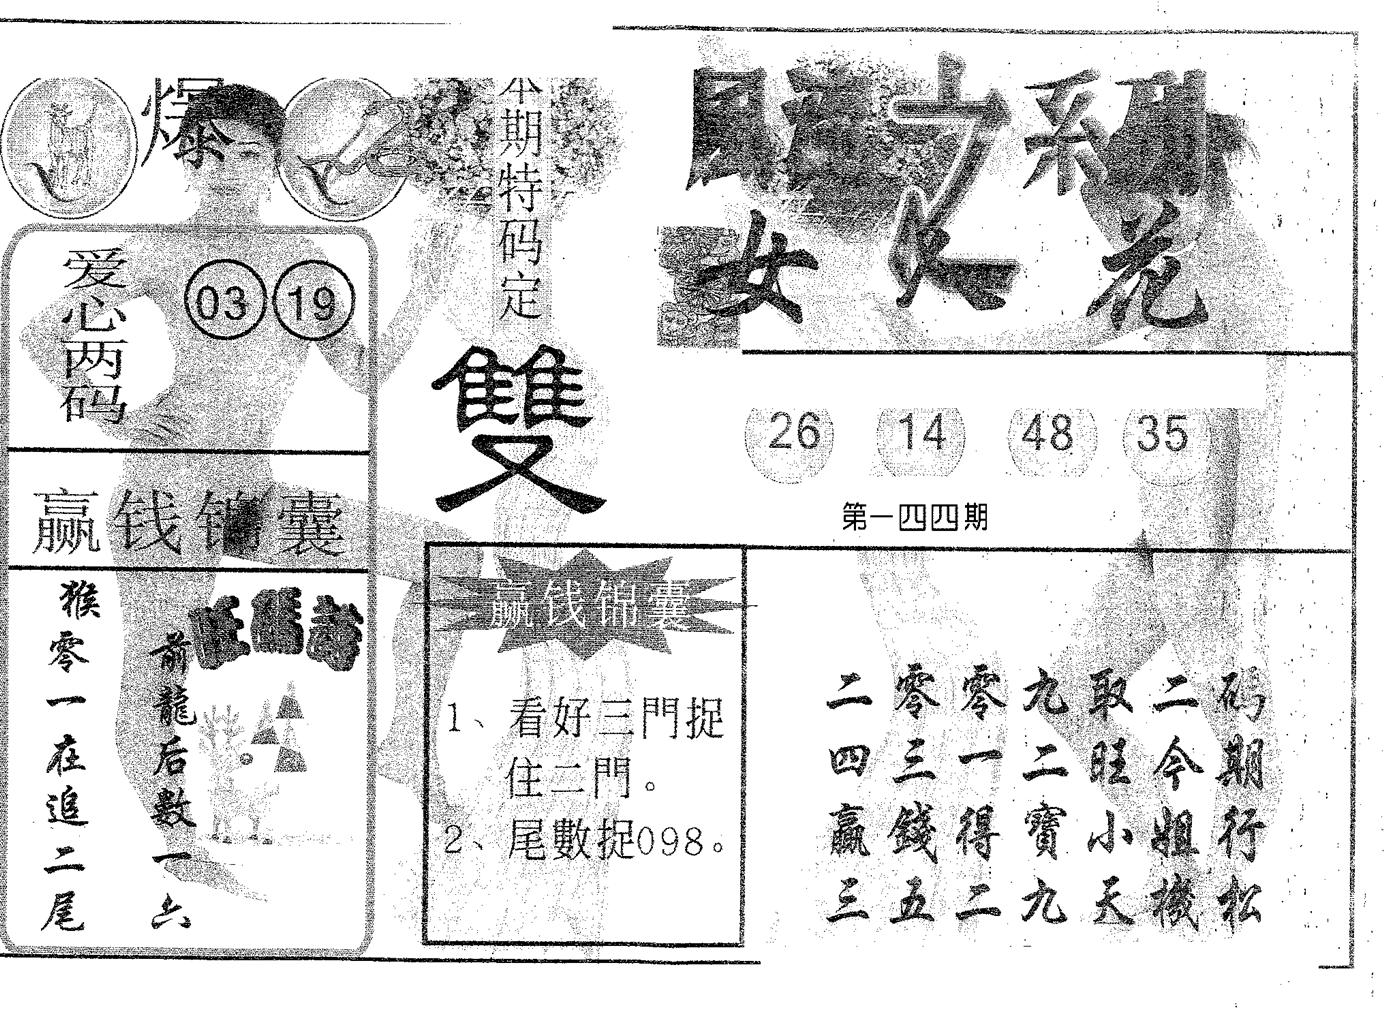 爆
本期特码定
雙
爱心两码
03 19
赢钱锦囊
前龍后數一六
猴零一在追二尾
赢钱锦囊
1、看好三門捉
住二門。
2、尾數捉098。
女
花
26 14 48 35
第一四四期
二零零九取二码
四三一二旺今期
贏錢得寶小姐行
三五二九天機松